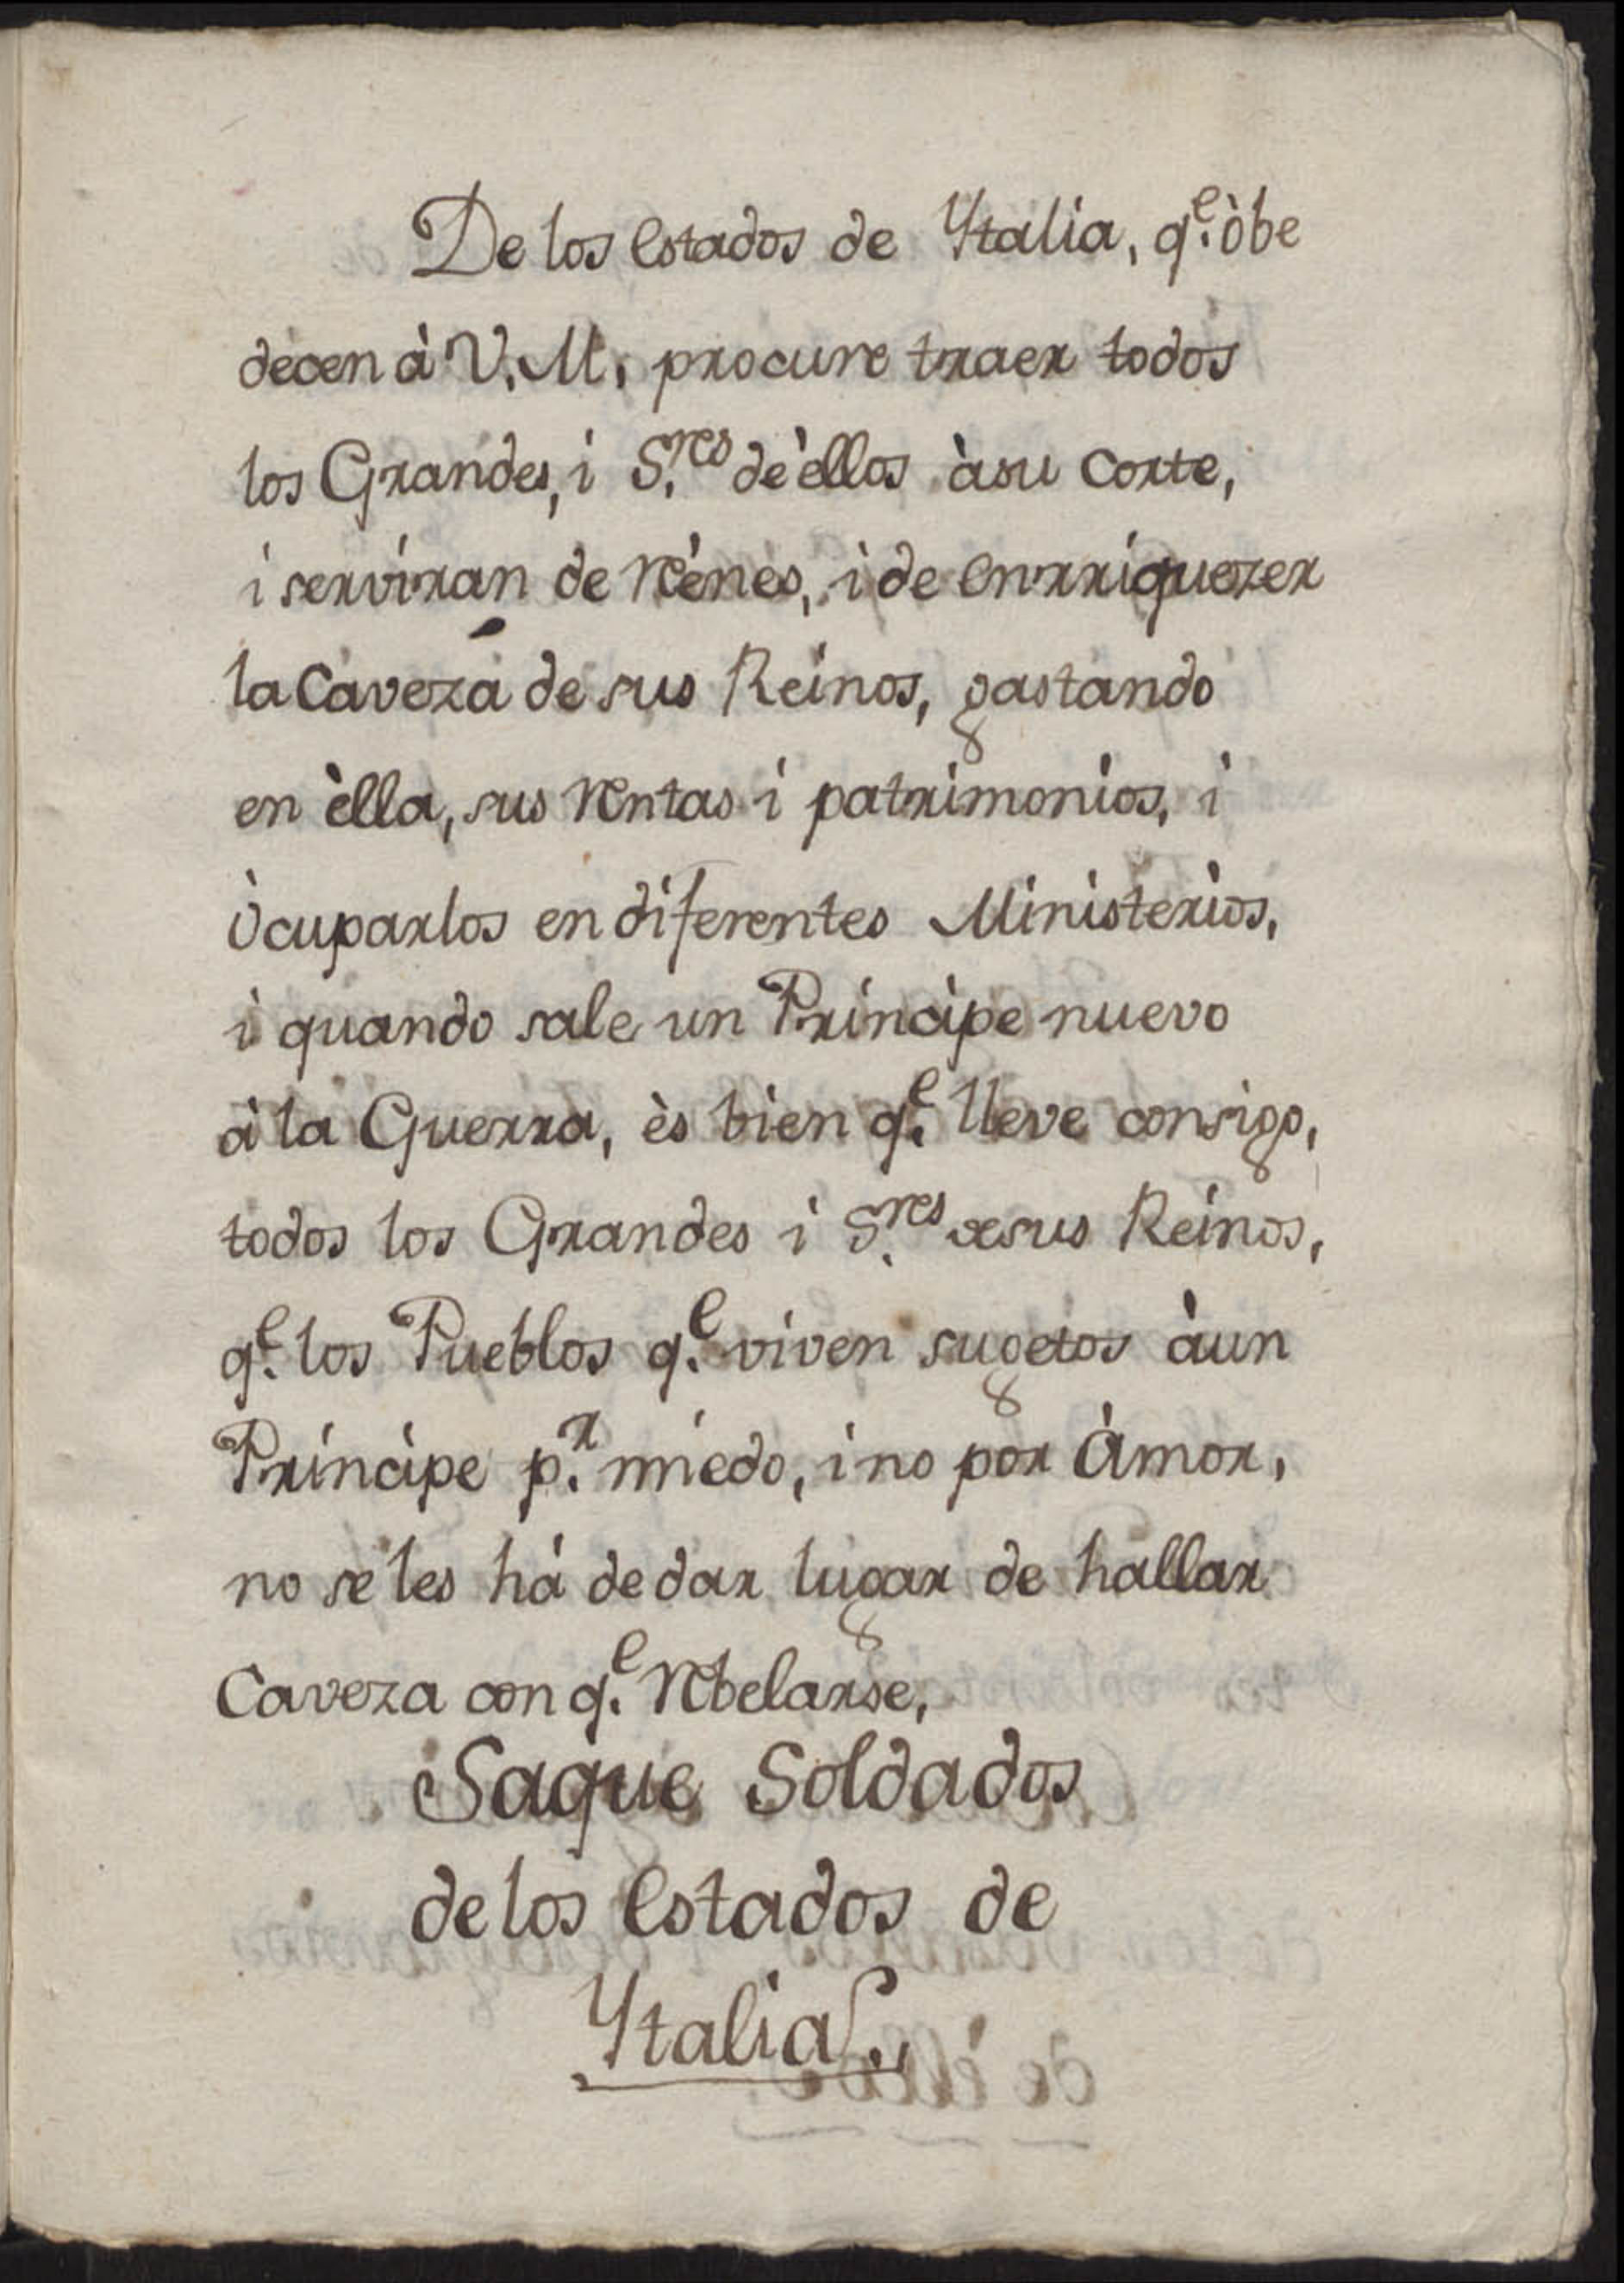 De los estados de Ytalia, q.^e òbe
decen à V. M. procure traer todos
los Grandes, i S.^res de èllos àsu Corte,
i serviran de Réhenes, i de enrriquezer
la Caveza de sus Reinos, gastando
en èlla, sus Rentas i patrimonios, i
òcuparlos en diferentes Ministerios,
i quando sale un Principe nuevo
à la Guerra, ès bien q.^e lleve consigo,
todos los Grandes i S.^res de sus Reinos,
q.^e los Pueblos q.^e viven sugetos àun
Principe p.^r miedo, i no por Àmor,
no se les hà de dar lugar de hallar
Caveza con q.^e Rebelarse,
Saque Soldados
de los estados de
Ytalia.,